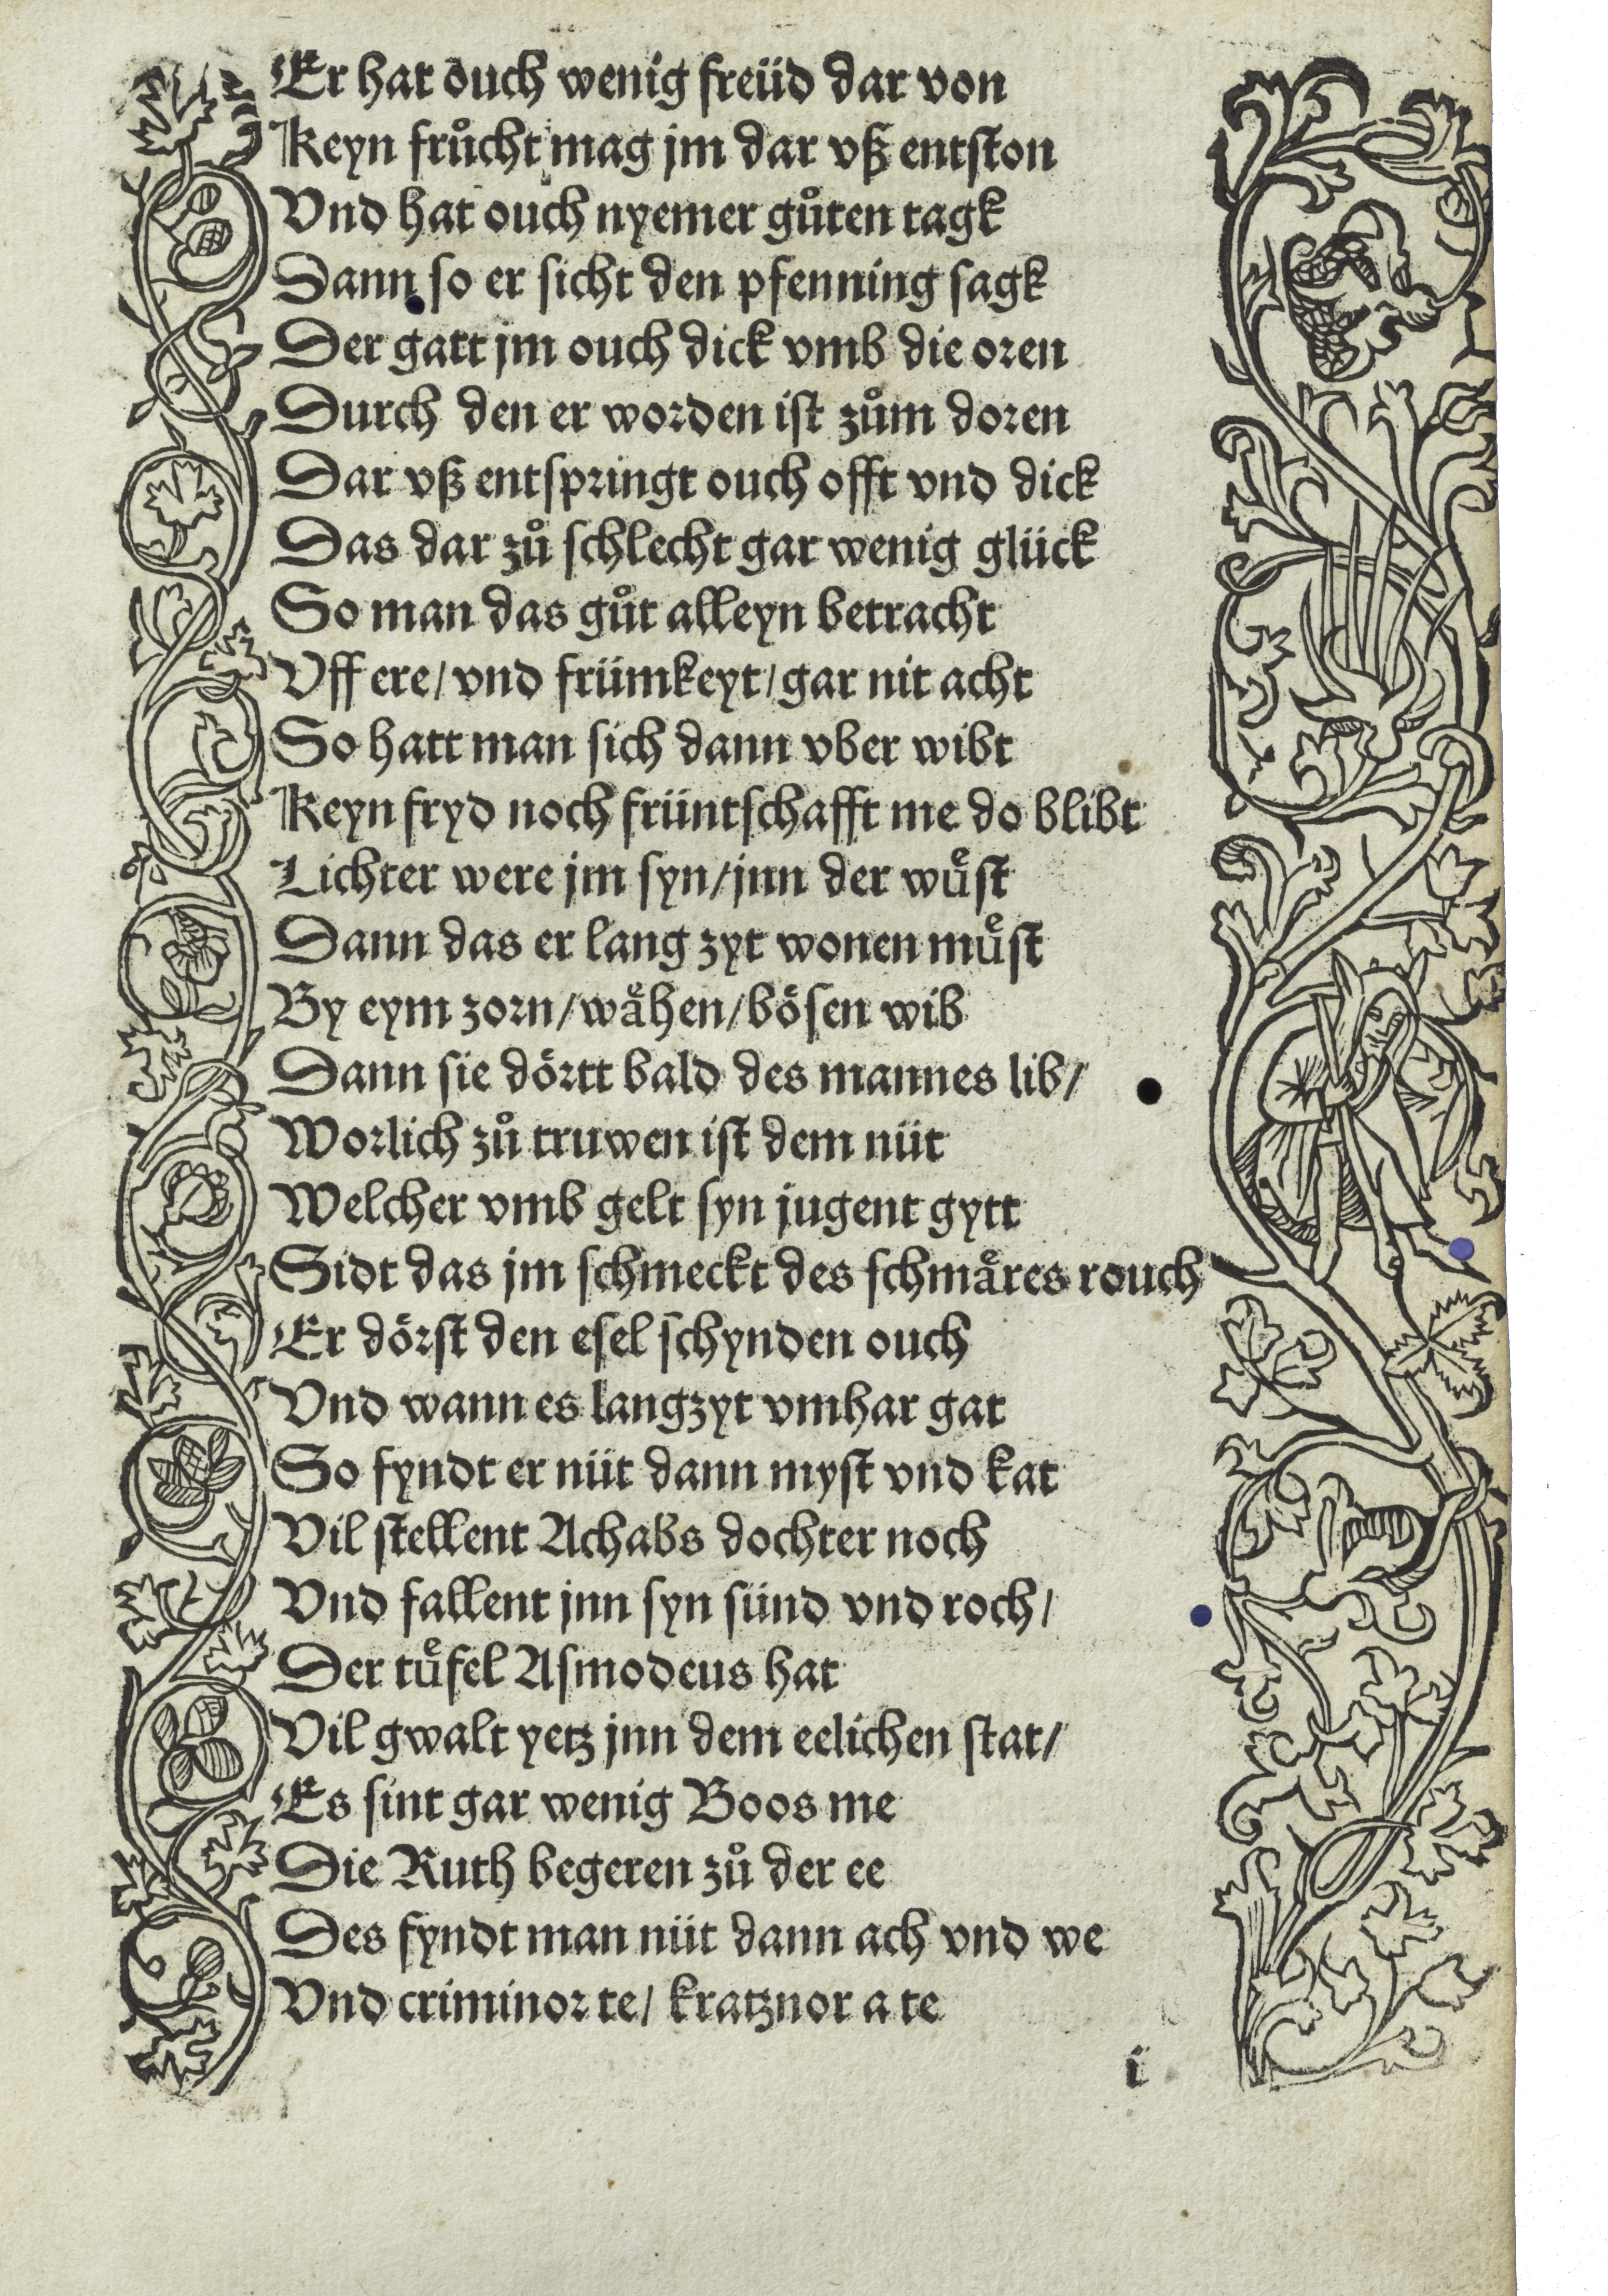 Er hat ouch wenig freüd dar von
Keyn frůcht mag jm dar vß entston
Vnd hat ouch nyemer gůten tagk
Dann so er sicht den pfenning sagk
Der gatt jm ouch dick vmb die oren
Durch den er worden ist zům doren
Dar vß entspringt ouch offt vnd dick
Das dar zů schlecht gar wenig glück
So man das gůt alleyn betracht
Vff ere / vnd frümkeyt / gar nit acht
So hatt man sich dann vber wibt
Keyn fryd noch früntschafft me do blibt
Lichter were jm syn / jnn der wuͤst
Dann das er lang zyt wonen muͤst
By eym zorn / waͤhen / boͤsen wib
Dann sie doͤrtt bald des mannes lib /
Worlich zů truwen ist dem nüt
Welcher vmb gelt syn jugent gytt
Sidt das jm schmeckt des schmaͤres rouch
Er doͤrst den esel schynden ouch
Vnd wann es langzyt vmhar gat
So fyndt er nüt dann myst vnd kat
Vil stellent Achabs dochter noch
Vnd fallent jnn syn sünd vnd roch /
Der tuͤfel Asmodeus hat
Vil gwalt yetz jnn dem eelichen stat /
Es sint gar wenig Boos me
Die Ruth begeren zů der ee
Des fyndt man nüt dann ach vnd we
Vnd criminor te / kratznor a te
i